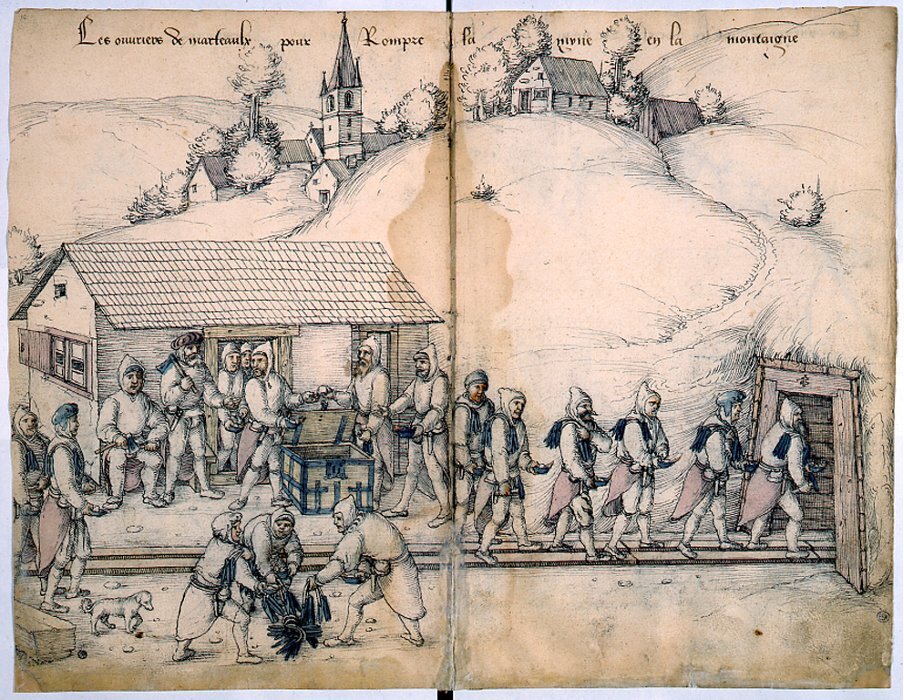 Les ouvriers de marteaulx pour Rompre la myne en la montaigne